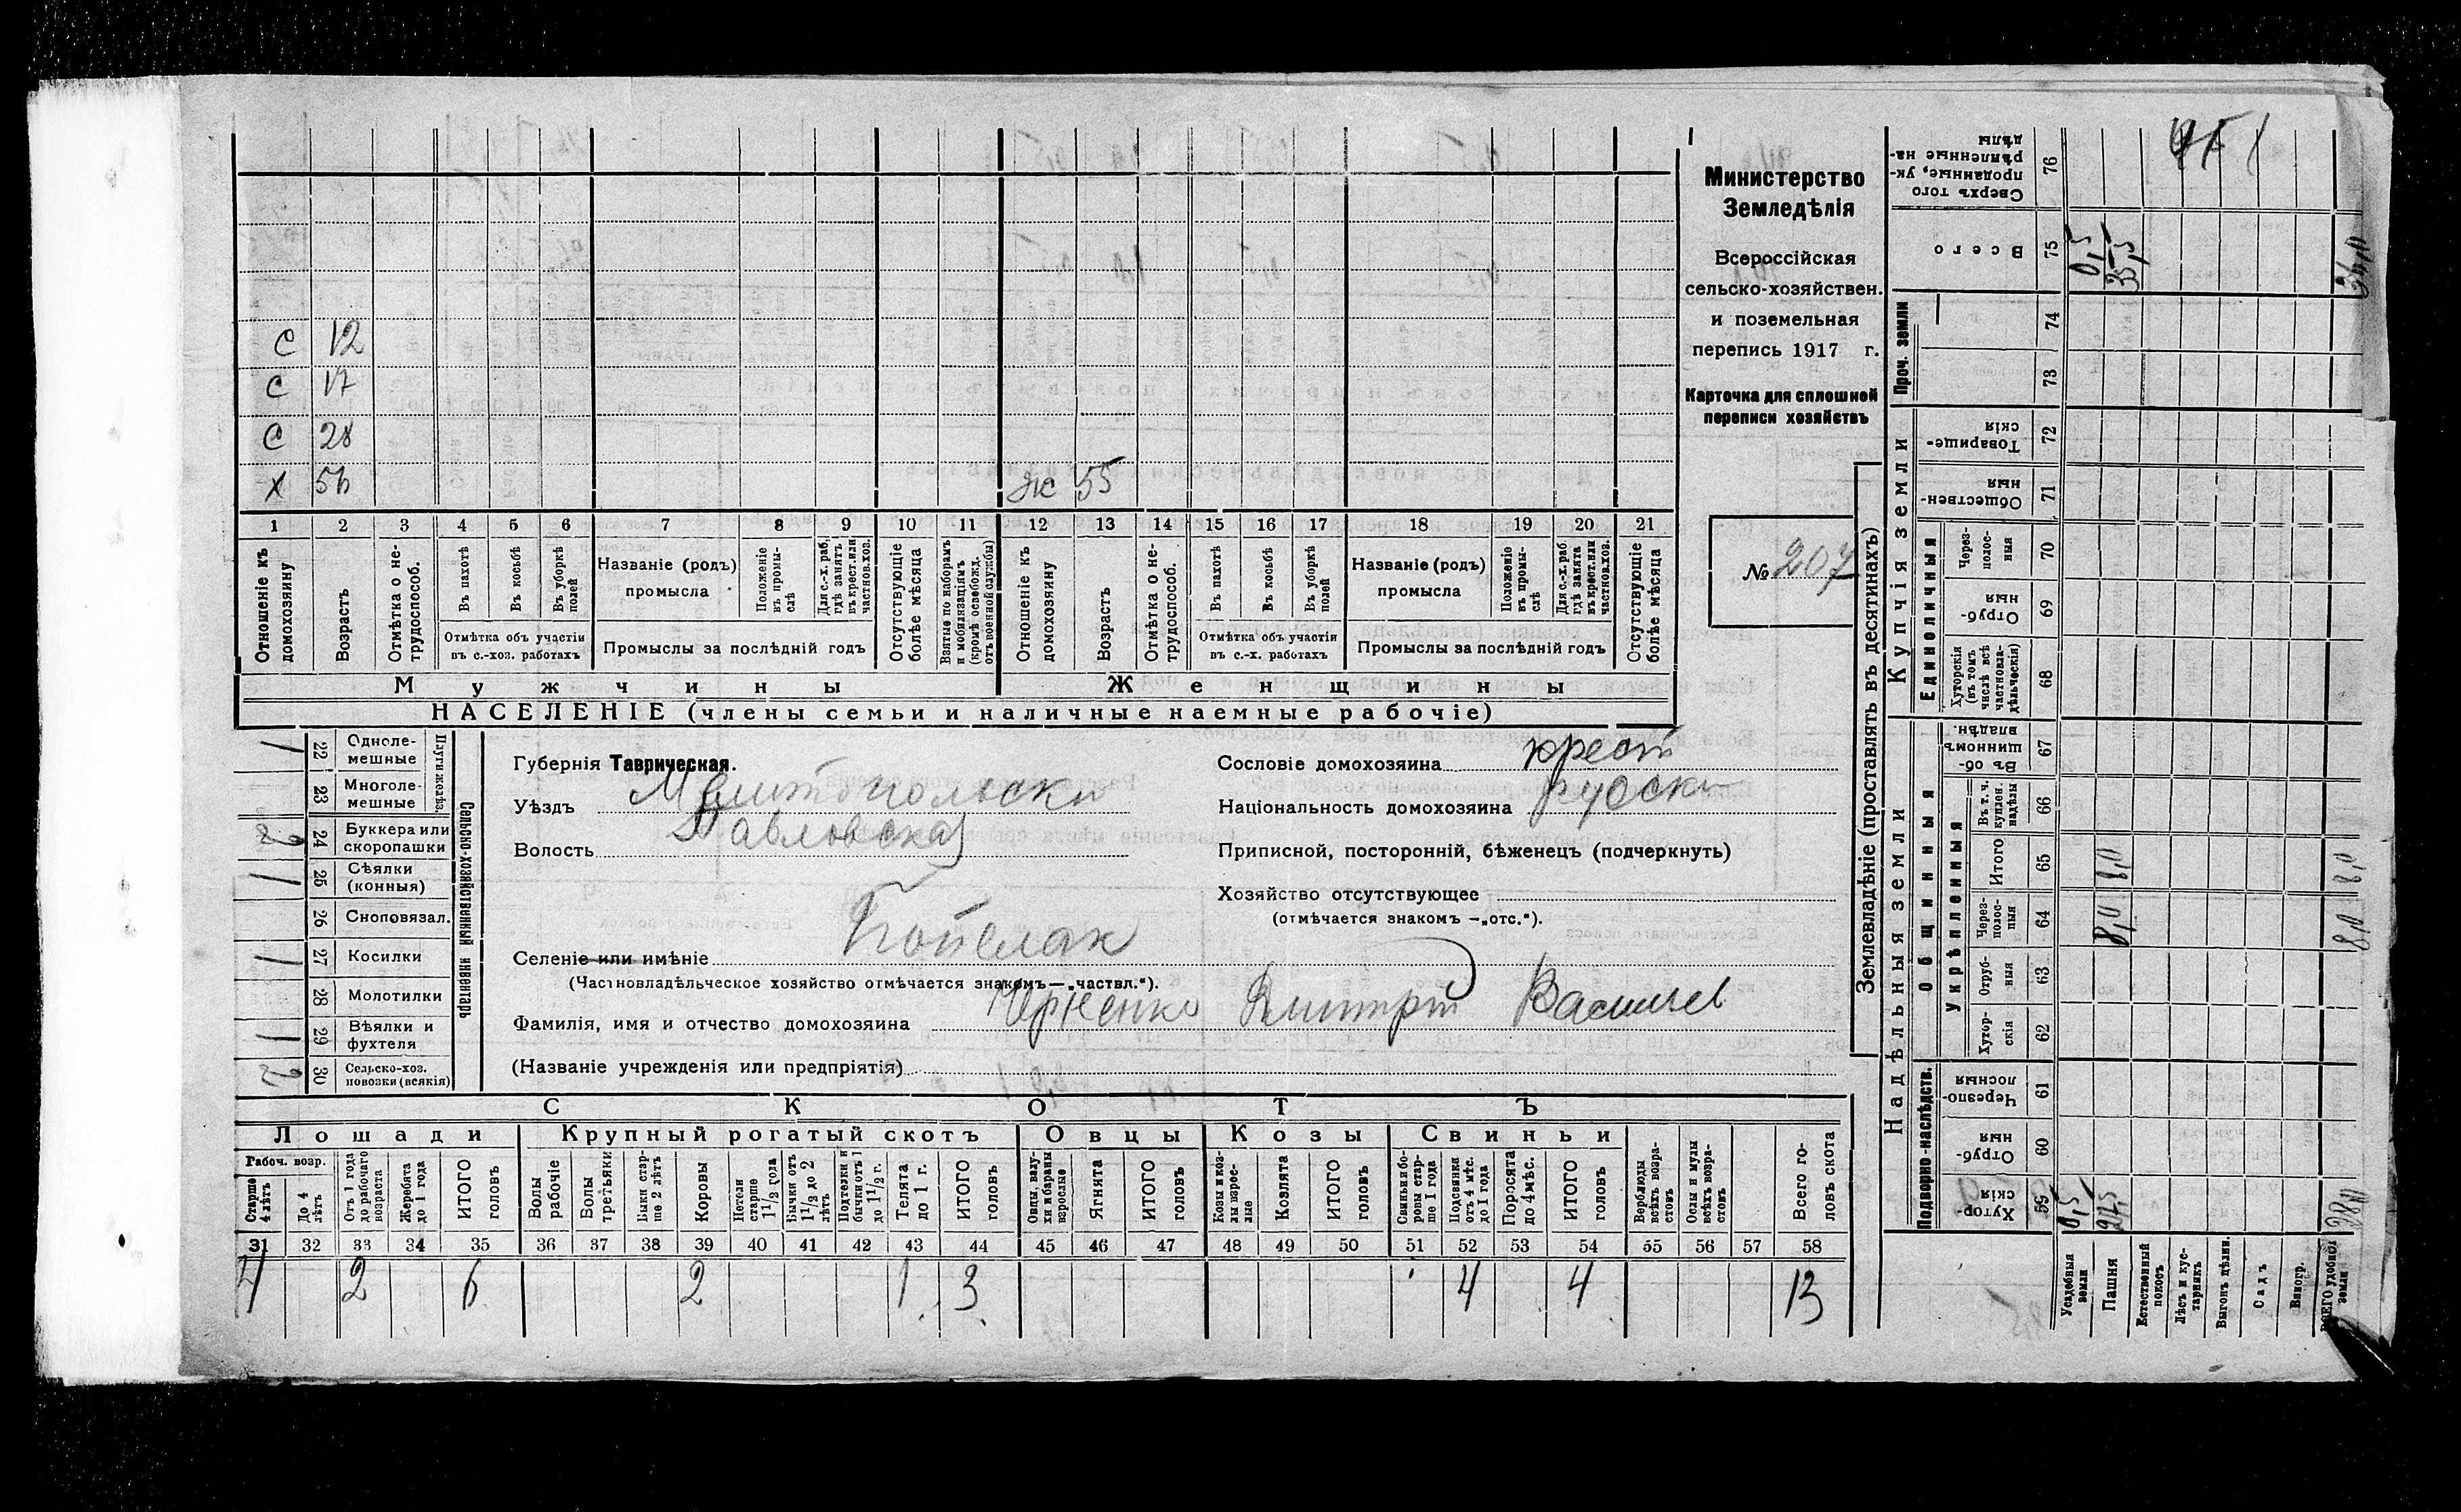 с 12
с 17
с 28
х 56 ж 55
1 2 3 4 5 6 7 8 9 10 11 12 13 14 15 16 17 18 19 20 21
Отношеніе къ домохозяину
Возрастъ
Отмѣтка о не-трудоспособ.
Въ пахотѣ
Въ косьбѣ
Въ уборкѣ полей
Отмѣтка объ участіи
въ с.-хоз. работахъ
Названіе (родъ)
промысла
Положеніе въ промы-слѣ
Для с.-х. раб. гдѣ занятъ въ крест. или частнов. хоз.
Промыслы за послѣдній годъ
Отсутствующіе болѣе мѣсяца
Взятые по наборамъ и мобилизаціямъ (кромѣ освобожд. отъ военной службы)
Отношеніе къ домохозяину
Возрастъ
Отмѣтка о не-трудоспособ.
Въ пахотѣ
Въ косьбѣ
Въ уборкѣ полей
Отмѣтка объ участіи
въ с.-х. работахъ
Названіе (родъ)
промысла
Положеніе въ промы-слѣ
Для с.-х. раб. гдѣ занята въ крест. или частнов. хоз.
Промыслы за послѣдній годъ
Отсутствующіе болѣе мѣсяца
Мужчины Женщины
НАСЕЛЕНІЕ (члены семьи и наличные наемные рабочіе)
Министерство
Земледѣлія
Всероссійская
сельско-хозяйствен.
и поземельная
перепись 1917 г.
Карточка для сплошной
переписи хозяйствъ
№ 207
Сельско-хозяйственный инвентарь
Плуги желѣз.
1 22 Одноле-мешные
23 Многоле-мешные
2 24 Буккера или скоропашки
1 25 Сѣялки (конныя)
26 Сноповязал.
1 27 Косилки
28 Молотилки
1 29 Вѣялки и фухтеля
2 30 Сельско-хоз. повозки (всякія)
Губернія Таврическая.
Уѣздъ Мелитопольски
Волость Павловская
Селеніе или имѣніе
(Частновладѣльческое хозяйство отмѣчается знакомъ—„частвл.“).
Фамилія, имя и отчество домохозяина Черненко Дмитрій Васильев
(Названіе учрежденія или предпріятія)
Сословіе домохозяина крест
Національность домохозяина русски
Приписной, посторонній, бѣженецъ (подчеркнуть)
Хозяйство отсутствующее
(отмѣчается знакомъ —„отс.“).
СКОТЪ
Лошади Крупный рогатый скотъ Овцы Козы Свиньи
Рабоч. возр.
Старше 4 лѣтъ
До 4 лѣтъ
Отъ 1 года до рабочаго возраста
Жеребята до 1 года
ИТОГО головъ
Волы рабочіе
Волы третьяки
Быки стар-ше 2 лѣтъ
Коровы
Нетели старше 1 1/2 года
Бычки отъ 1 1/2 до 2 лѣтъ
Подтелки и бычки отъ 1 до 1 1/2 г.
Телята до 1 г.
ИТОГО головъ
Овцы, валу-хи и бараны взрослые
Ягнята
ИТОГО головъ
Козы и коз-лы взрос-лые
Козлята
ИТОГО головъ
Свиньи и бо-ровы стар-ше 1 года
Подсвинки отъ 4 мѣс. до 1 года
Поросята до 4 мѣс.
ИТОГО головъ
Верблюды всѣхъ возра-стовъ
Ослы и мулы всѣхъ возра-стовъ
Всего го-ловъ скота
31 32 33 34 35 36 37 38 39 40 41 42 43 44 45 46 47 48 49 50 51 52 53 54 55 56 57 58
4 2 6 2 1 3 4 4 13
Землевладѣніе (проставлять въ десятинахъ)
Надѣльныя земли Купчія земли Проч. земли
Подворно-наслѣдств. Общинныя Единоличныя
Укрѣпленныя
Хутор-скія 59
Отруб-ныя 60
Черезпо-лосныя 61
Хутор-скія 62
Отруб-ныя 63
Через-полос-ныя 64
Итого 65
Въ т. ч. куплен. надѣлы 66
Въ об-щинномъ владѣн. 67
Хуторскія (въ томъ числѣ всѣ частновла-дѣльческія) 68
Отруб-ныя 69
Через-полос-ныя 70
Обществен-ныя 71
Товарище-скія 72
73
74
Всего 75
Сверхъ того проданные, ук-рѣпленные на-дѣлы 76
Усадебныя земли 0,5 0,5
Пашня 27,5 8,0 8,0 35,5
Естественный покосъ
Лѣсъ и кус-тарникъ
Выгонъ цѣлин.
Садъ
Виногр.
ВСЕГО удобной земли 28,0 8,0 8,0 36,0